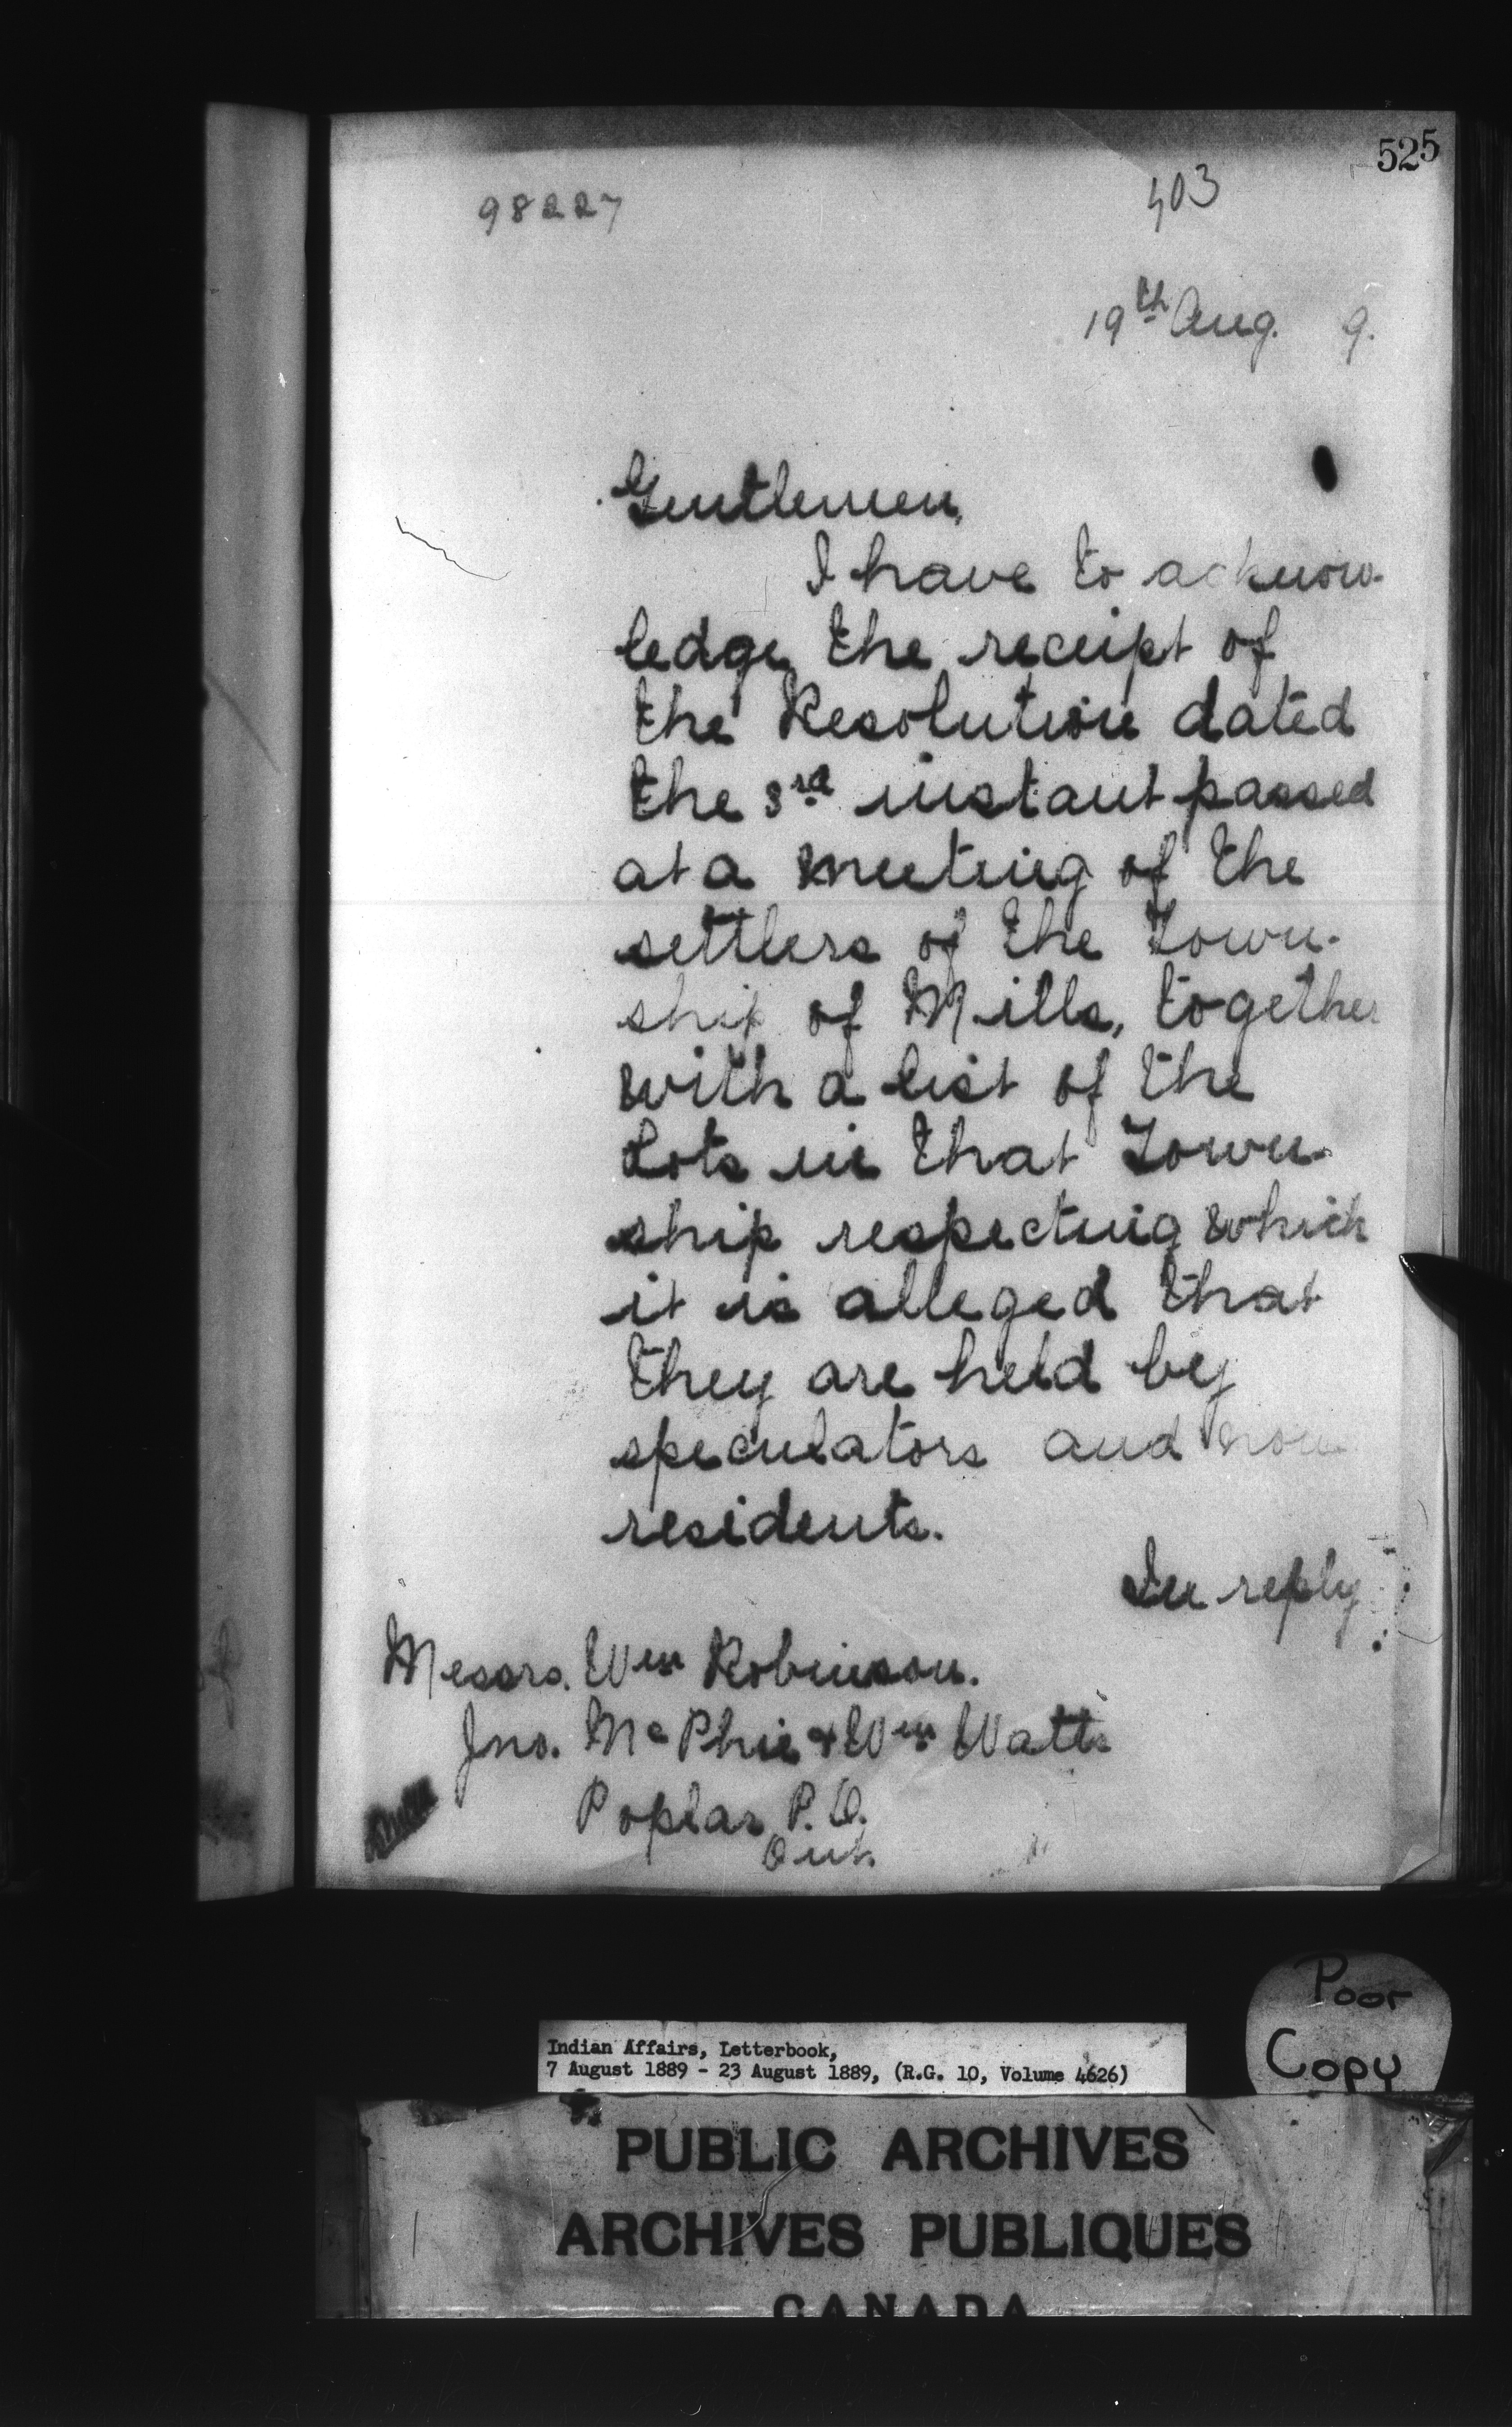 525
98227
403
19th Aug. 9.
Gentlemen,
I have to acknow-
ledge the receipt of
the Resolution dated
the 3rd instant passed
at a meeting of the
settlers of the Town-
ship of Mills, together
with a list of the
Lots in that Town-
ship respecting which
it is alleged that
they are held by
speculators and non
residents.
In reply
Messrs. Wm Robinson.
Jno. McPhie & Wm Watts
Poplar P.O.
Ont.
Poor
Copy
Indian Affairs, Letterbook,
7 August 1889 - 23 August 1889, (R.G. 10, Volume 4626)
PUBLIC ARCHIVES
ARCHIVES PUBLIQUES
CANADA